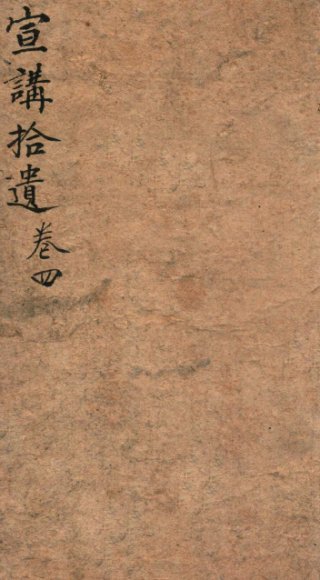 宣講拾遺
卷四